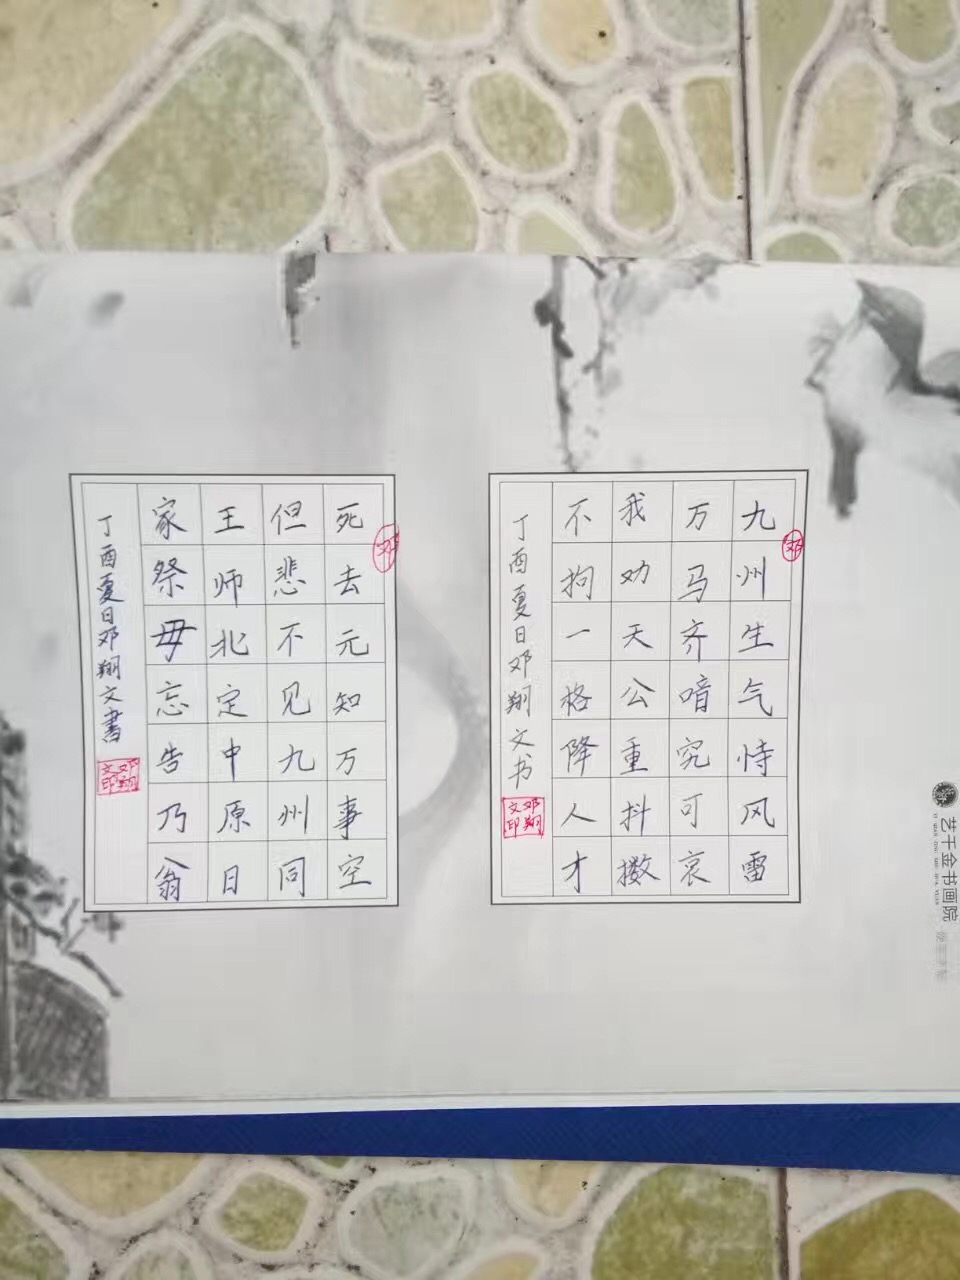 艺千金书画院
邓
九州生气恃风雷
万马齐喑究可哀
我劝天公重抖擞
不拘一格降人才
丁酉夏日邓翔文书
邓翔文印
邓
死去元知万事空
但悲不见九州同
王师北定中原日
家祭毋忘告乃翁
丁酉夏日邓翔文書
邓翔文印